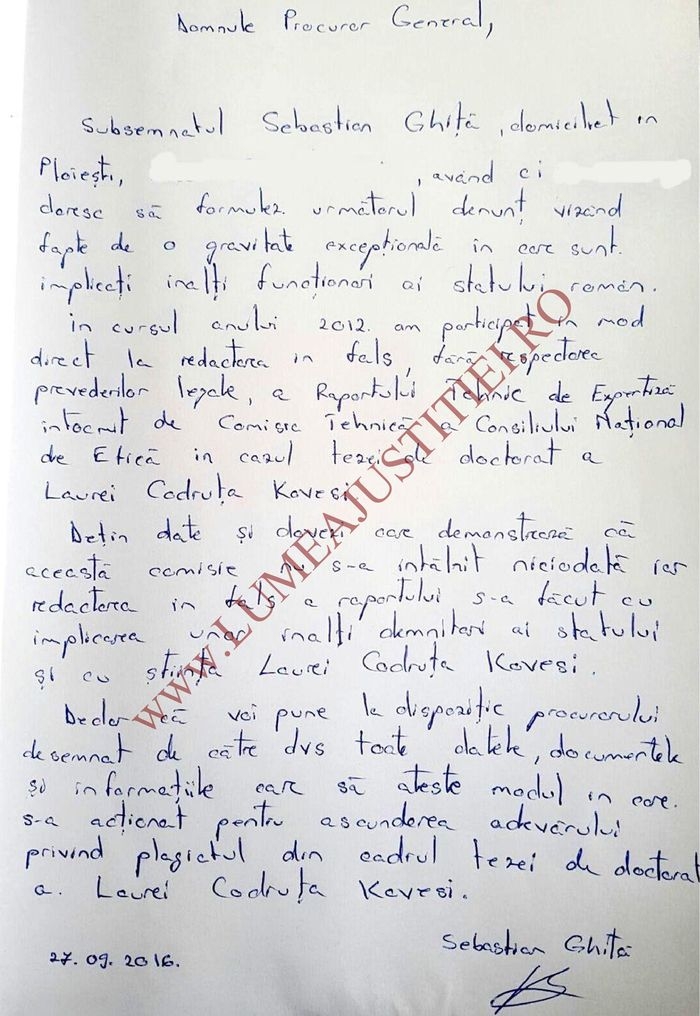 Domnule Procuror General,
Subsemnatul Sebastian Ghiță, domiciliat in
Ploiești, , având ci
doresc să formulez următorul denunț vizând
fapte de o gravitate excepțională in care sunt.
implicați inalți funcționari ai statului român.
in cursul anului 2012. am participat in mod
direct la redactarea in fals, fără respectarea
prevederilor legale, a Raportului Tehnic de Expertiză
intocmit de Comisie Tehnică a Consiliului Național
de Etică in cazul tezei de doctorat a
Laurei Codruța Kovesi
Dețin date și dovezi care demonstrează că
această comisie nu s-a intâlnit niciodată iar
redactarea in fals a raportului s-a făcut cu
implicarea unor inalți demnitari ai statului
și cu știința Laurei Codruța Kovesi.
Declar că voi pune la dispoziție procurorului
desemnat de către dvs toate datele, documentele
și informațiile care să ateste modul in care.
s-a acționat pentru ascunderea adevărului
privind plagiatul din cadrul tezei de doctorat
a. Laurei Codruța Kovesi.
Sebastian Ghiță
27.09.2016.
www.LUMEAJUSTITIEI.RO